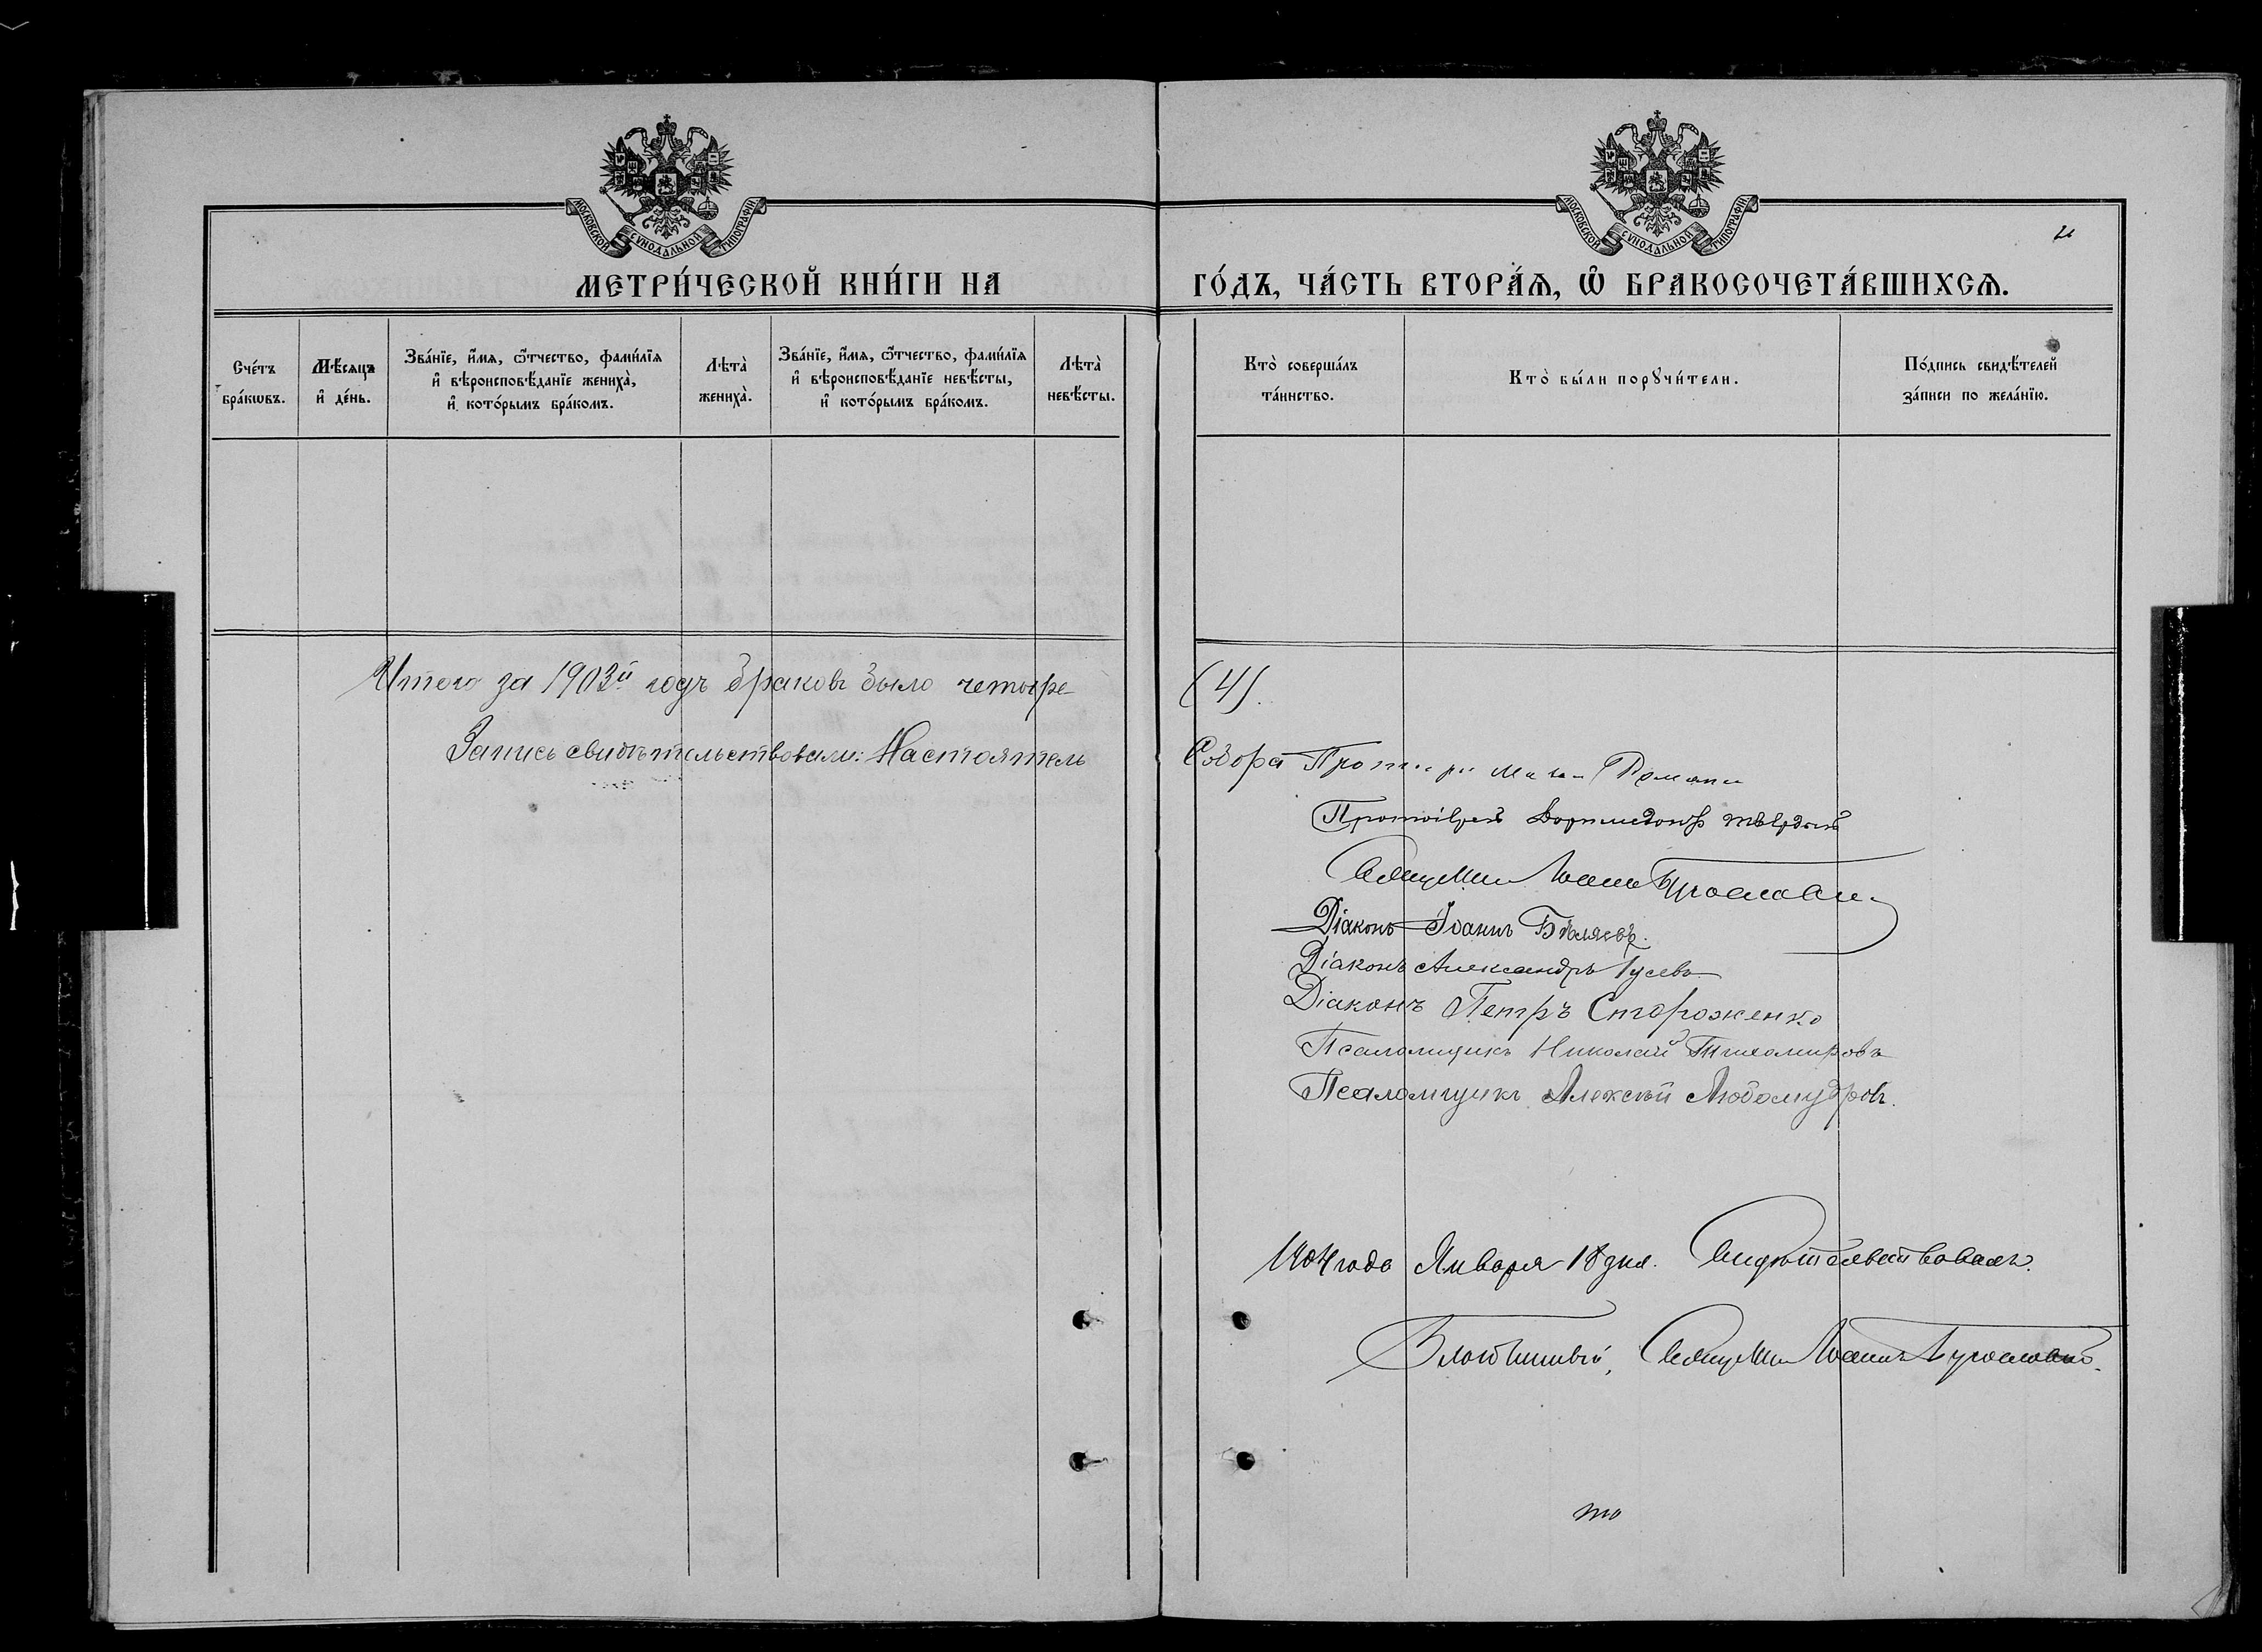 МОСКОВСКОЙ СѴНОДАЛЬНОЙ ТИПОГРАФІИ
МОСКОВСКОЙ СѴНОДАЛЬНОЙ ТИПОГРАФІИ
МЕТРИ́ЧЕСКОЙ КНИ́ГИ НА ГО́ДЪ, ЧА́СТЬ ВТОРА́Ѧ, Ѡ҆ БРАКОСОЧЕТА́ВШИХСѦ.
Сче́тъ бра́кѡвъ.
Мѣ́сѧцъ и҆ де́нь.
Зва́нїе, и҆́мѧ, ѻ҆́тчество, фами́лїѧ и҆ вѣроисповѣ́данїе жениха̀, и҆ кото́рымъ бра́комъ.
Лѣта̀ жениха̀.
Зва́нїе, и҆́мѧ, ѻ҆́тчество, фами́лїѧ и҆ вѣроисповѣ́данїе невѣ́сты, и҆ кото́рымъ бра́комъ.
Лѣта̀ невѣ́сты.
Кто̀ соверша́лъ та́инство.
Кто̀ бы́ли порꙋчи́тели.
По́дпись свидѣ́телей за́писи по жела́нїю.
Итого за 1903й годъ браковъ было четыре (4).
Запись свидѣтельствовали: Настоятель Собора
Протоіерей
Священникъ Іоаннъ
Діаконъ Іоаннъ Бѣляевъ.
Діаконъ Александръ Гусевъ
Діаконъ Петръ Стороженко
Псаломщикъ Николай Тихомировъ
Псаломщикъ Алексѣй Любомудровъ.
1904 года Января 18 дня. Свидѣтельствовалъ.
Благочинный, Священникъ Іоаннъ